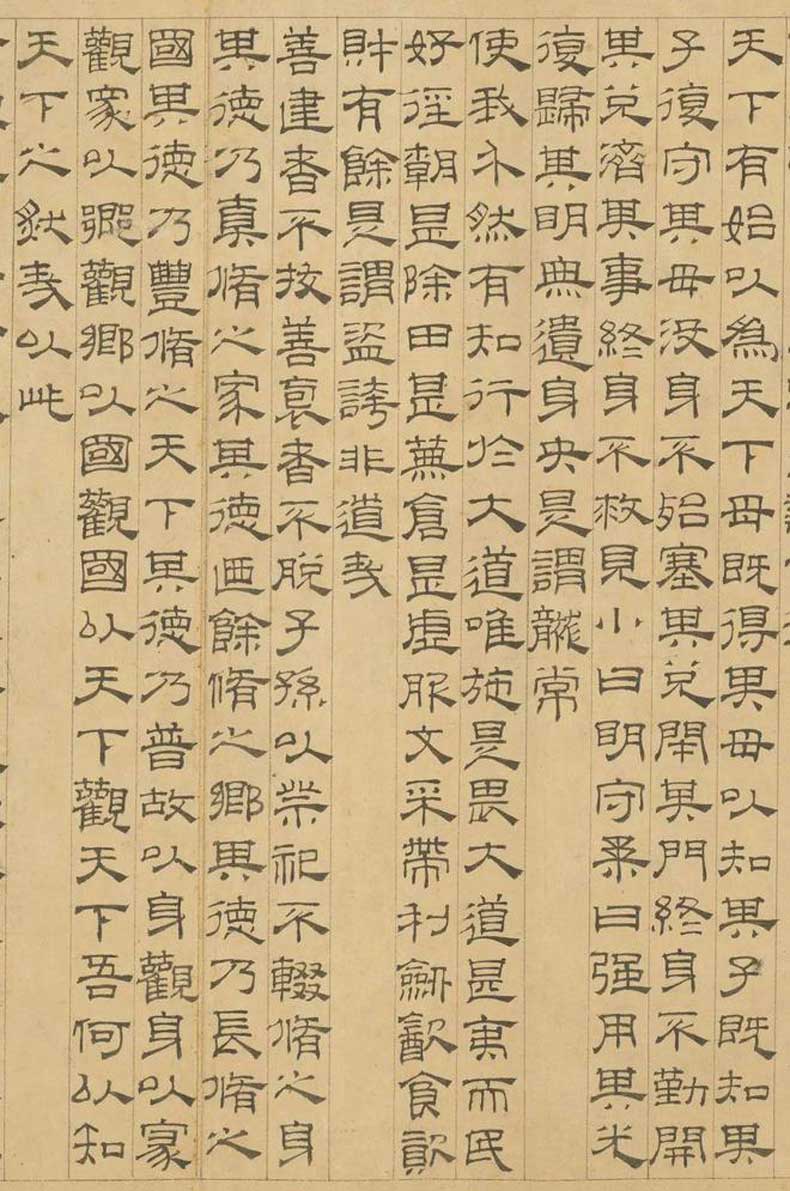 天下有始以為天下母既得其母以知其子既知其
子復守其母没身不殆塞其兑閉其門終身不勤開
其兑濟其事終身不救見小曰明守柔曰强用其光
復歸其明無遺身央是謂襲常
使我介然有知行於大道唯施是畏大道甚夷而民
好徑朝甚除田甚蕪倉甚虚服文采帶利劒猒食飲
財有餘是謂盜誇非道哉
善建者不拔善裒者不脱子孫以祭祀不輟脩之身
其德乃真脩之家其德迺餘脩之鄉其德乃長脩之
國其德乃豐脩之天下其德乃普故以身觀身以家
觀家以鄉觀鄉以國觀國以天下觀天下吾何以知
天下之肰哉以此